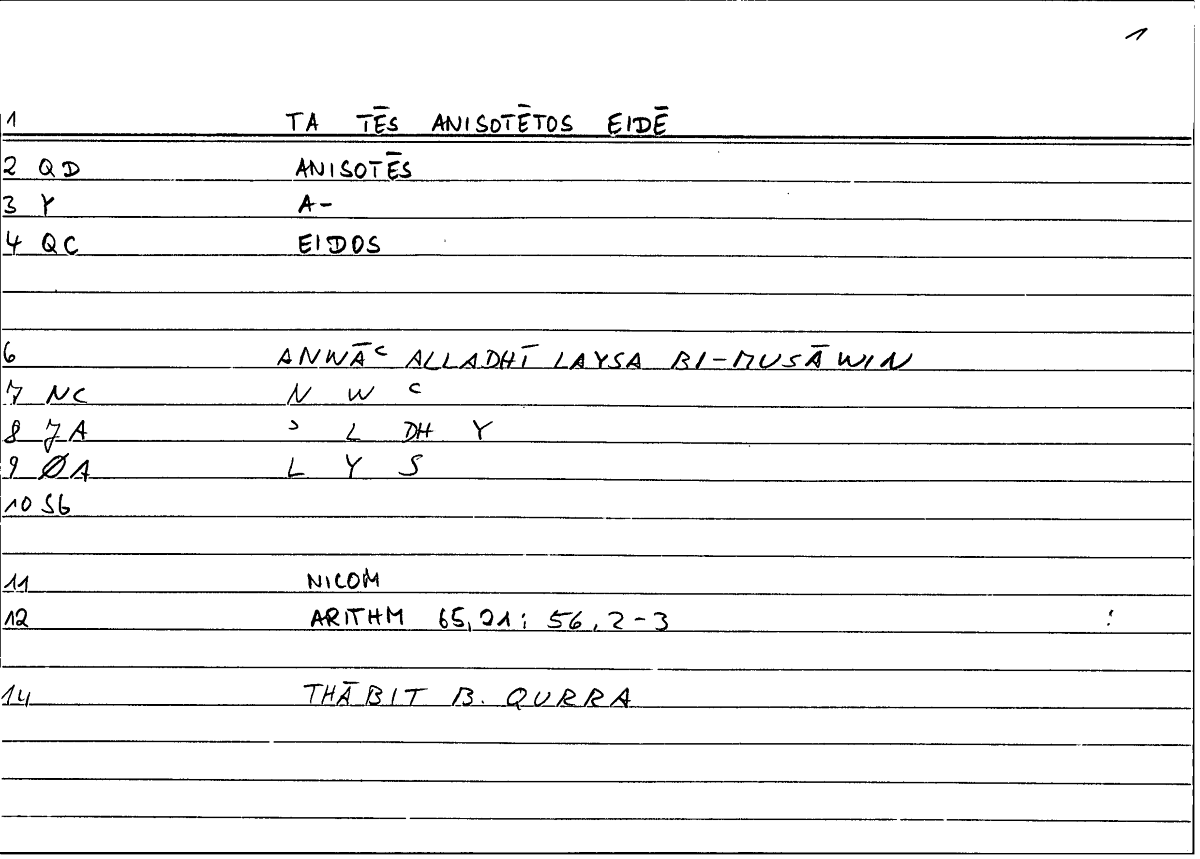 1
1 TA TĒS ANISOTĒTOS EIDĒ
2 QD ANISOTĒS
3 Y A-
4 QC EIDOS
6 ANWĀʿ ALLADHĪ LAYSA BI-MUSĀWIN
7 NC N W ʿ
8 7A ʾ L DH Y
9 ØA L Y S
10 S6
11 NICOM
12 ARITHM 65,21; 56,2-3 :
14 THĀBIT B. QURRA